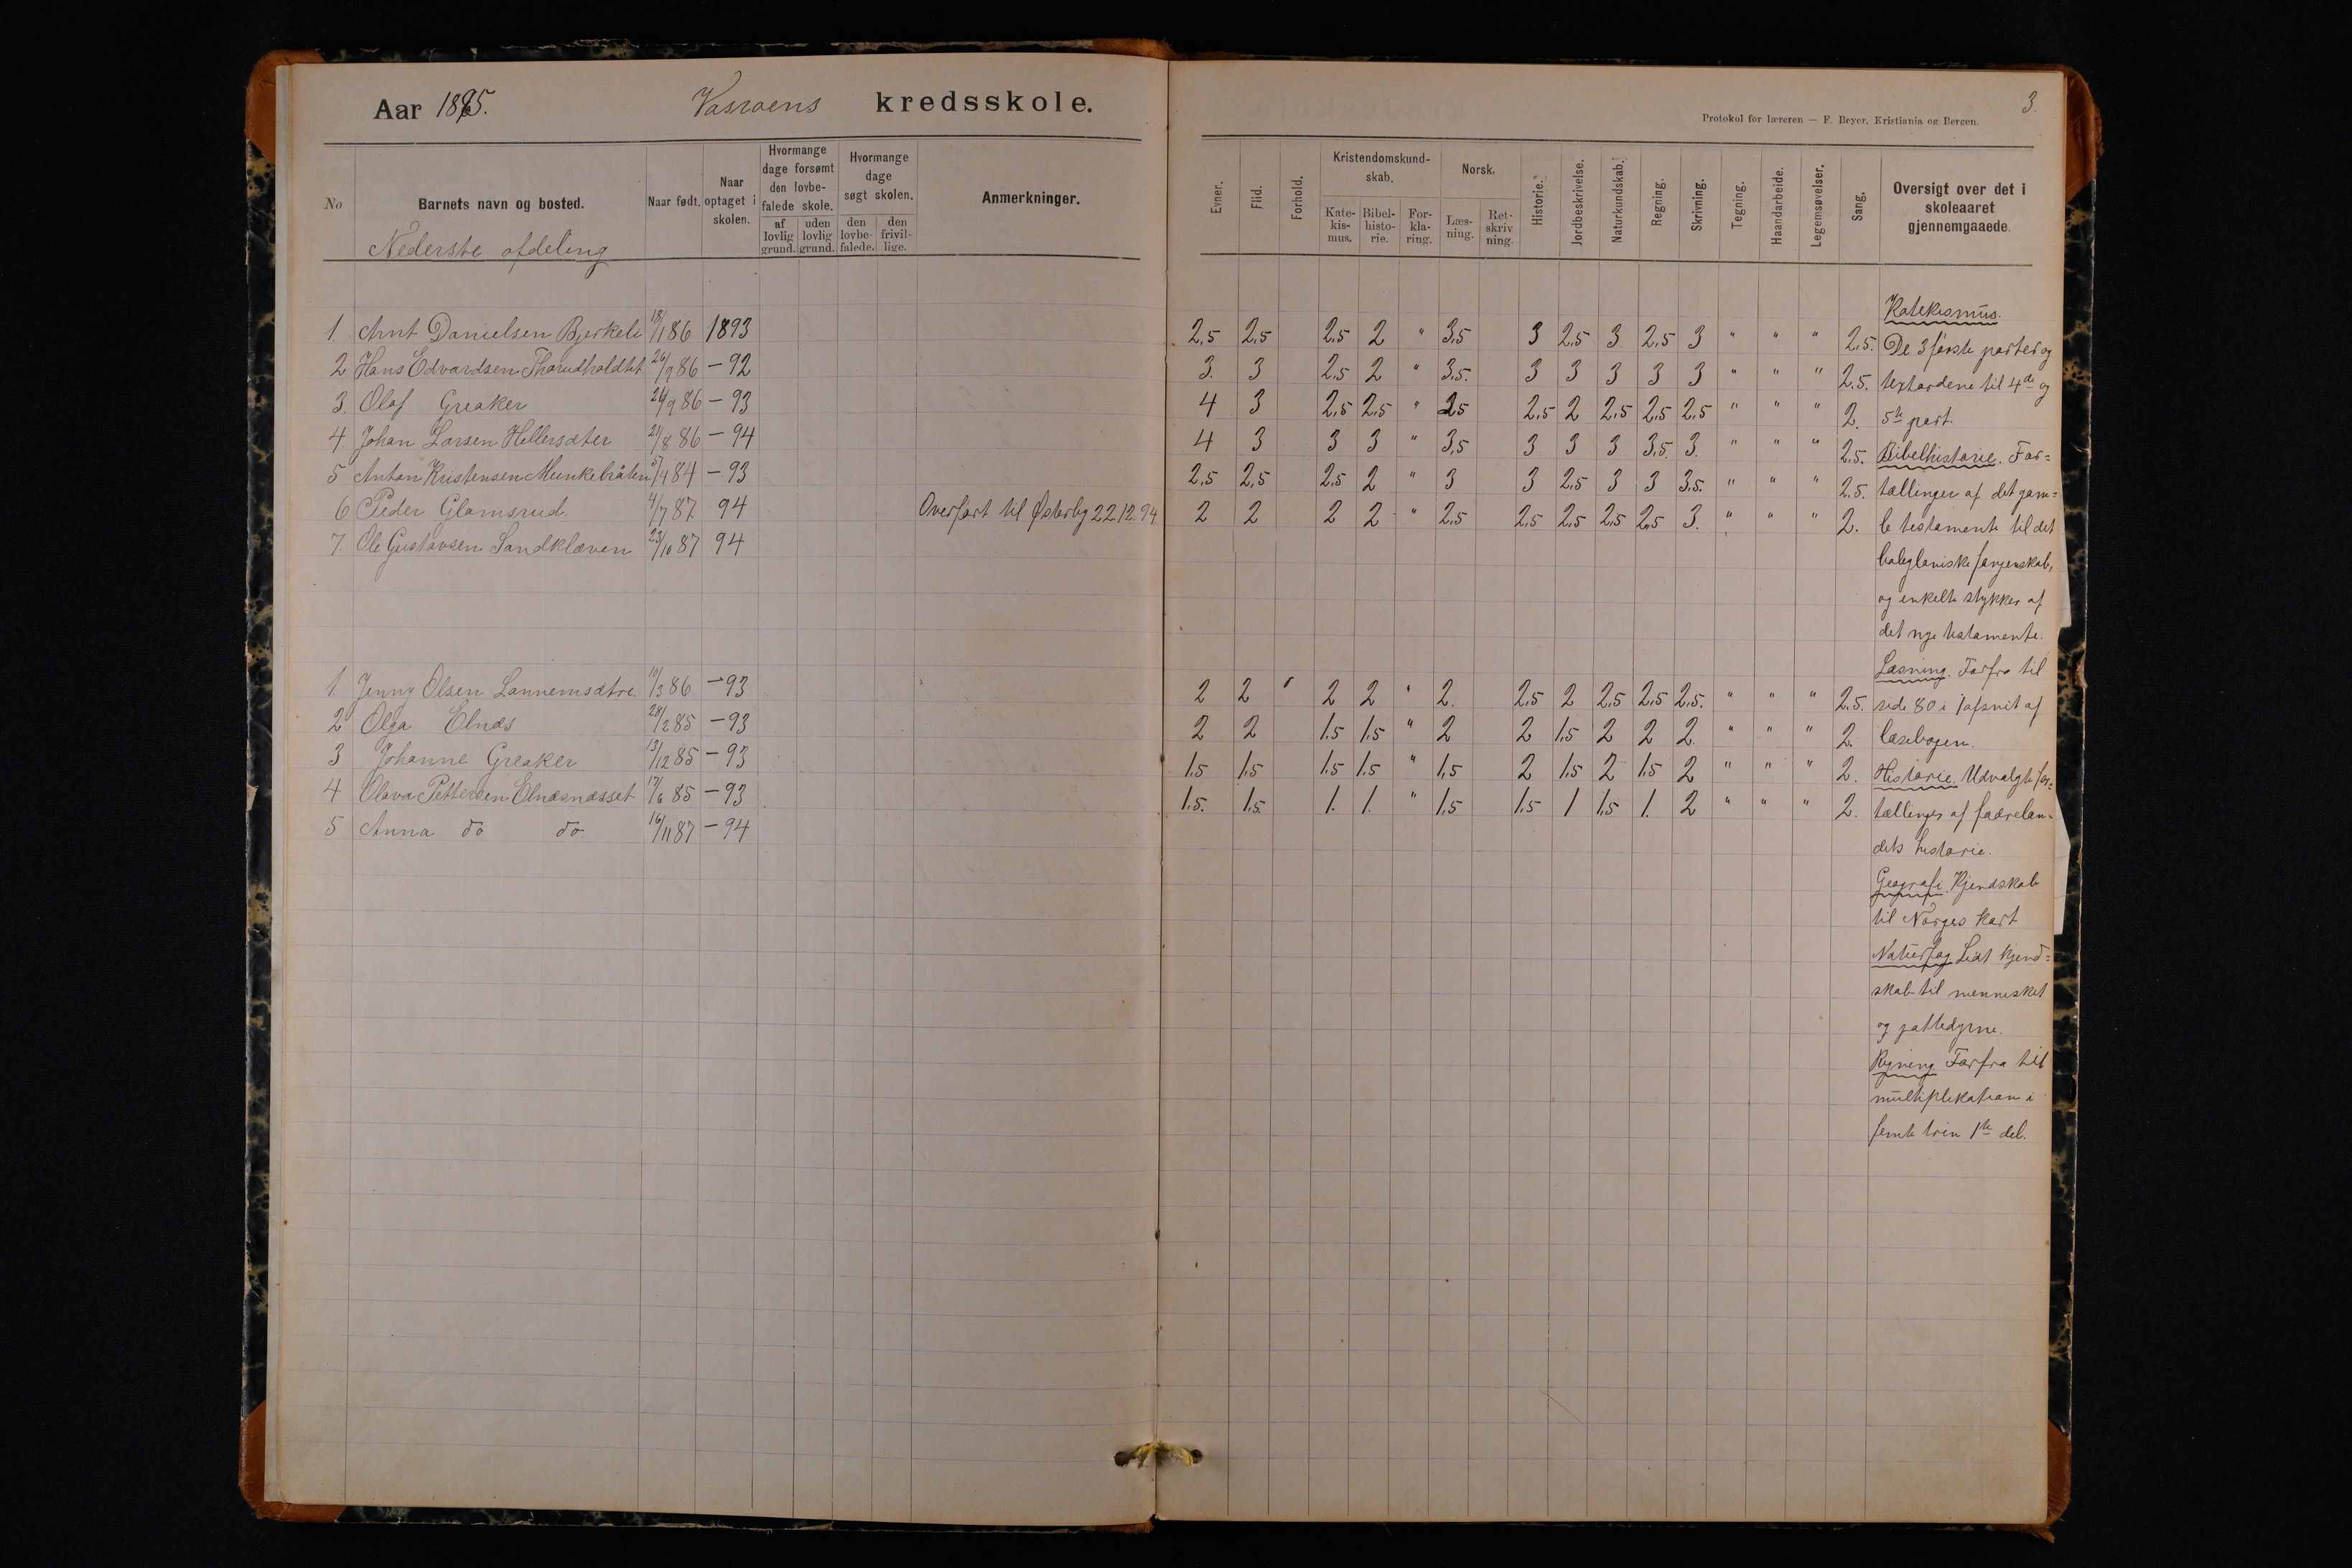 Aar 1895. Vasraens kredsskole.
3.
Protokol for læreren — F. Beyer, Kristiania og Bergen.
No Barnets navn og bosted. Naar født. Naar optaget i skolen. Hvormange dage forsømt den lovbefalede skole. af lovlig grund. uden lovlig grund. Hvormange dage søgt skolen. den lovbefalede. den frivillige. Anmerkninger.
Evner. Flid. Forhold. Kristendomskundskab. Katekismus. Bibelhistorie. Forklaring. Norsk. Læsning. Retskrivning. Historie. Jordbeskrivelse. Naturkundskab. Regning. Skrivning. Tegning. Haandarbeide. Legemsøvelser. Sang. Oversigt over det i skoleaaret gjennemgaaede.
Nederste afdeling
1. Arnt Danielsen Bjerkeli 18/1 86 1893
2 Hans Edvardsen Thorudholdtet 26/9 86 – 92
3. Olaf Greaker 24/9 86 – 93
4. Johan Larsen Hellersæter 21/8 86 – 94
5 Anton Kristensen Munkebråten 5/4 84 – 93
6 Peder Glamsrud 4/7 87 94 Overført til Østerby 22.12.94
7. Ole Gustavsen Sandkleven 23/10 87 94
1. Jenny Olsen Lannemsætre 10/3 86 – 93
2 Olga Elnæs 28/2 85 – 93
3 Johanne Greaker 13/12 85 – 93
4 Olava Pettersen Elnæsnæsset 17/6 85 – 93
5 Anna do do 16/11 87 – 94
2,5 2,5 2,5 2 " 3,5 3 2,5 3 2,5 3 " " " 2,5.
3. 3 2,5 2 " 3,5. 3 3 3 3 3 " " " 2,5.
4 3 2,5 2,5 " 2,5 2,5 2 2,5 2,5 2,5 " " " 2.
4 3 3 3 " 3,5 3 3 3 3,5. 3. " " " 2,5.
2,5 2,5 2,5 2 " 3 3 2,5 3 3 3,5. " " " 2,5.
2 2 2 2 " 2,5 2,5 2,5 2,5 2,5 3. " " " 2.
2 2 " 2 2 " 2. 2,5 2 2,5 2,5 2,5. " " " 2,5.
2 2 1,5 1,5 " 2 2 1,5 2 2 2. " " " 2.
1,5 1,5 1,5 1,5 " 1,5 2 1,5 2 1,5 2 " " " 2.
1,5. 1,5. 1. 1. " 1,5 1,5 1 1,5 1. 2 " " " 2.
Katekismus.
De 3 første parter og
textordene til 4de og
5te part.
Bibelhistorie. For=
tællinger af det gam=
le testamente til det
babyloniske fangenskab,
og enkelte stykker af
det nye testamente.
Læsning. Forfra til
side 80 i 1 afsnit af
læsebogen.
Historie. Udvalgte for=
tællinger af fædrelan=
dets historie.
Geografi. Kjendskab
til Norges kart
Naturfag Lidt kjend=
skab til mennesket
og pattedyrene.
Regning Forfra til
multiplikation i
femte trin 1te del.